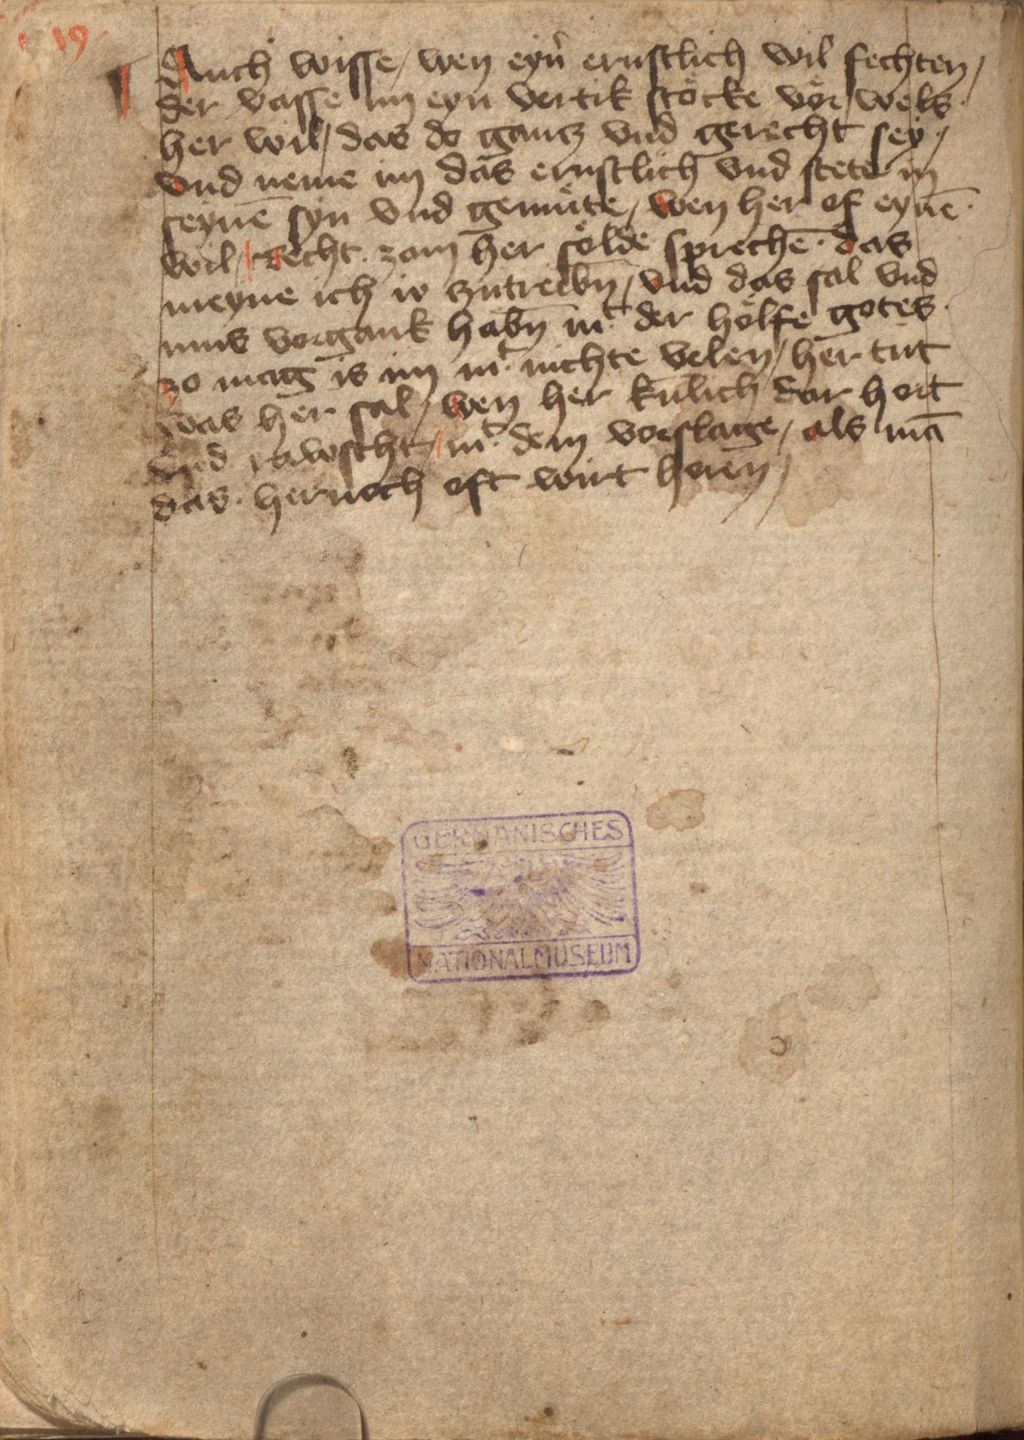 19
Auch wisse / wen eyn̾ ernstlich wil fechten /
der vasse im eyn vertik stöcke vör / wels
her wil / das do gantz vnd gerecht sey /
vnd neme im das ernstlich vnd stete in
seynē syn vnd gemüte / wen her of eynē ·
wil / Recht · zam her sölde sprechē · das
meyne ich io czutreibñ / vnd das sal vnd
mus vorgank habñ mt der hölfe gotes ·
zo mag is im mt nichte velen / her tut
was her sal / wen her künlich dar hort
vnd rawscht / mt dem vorslage / als mā
das · hernoch oft wirt hörẽ /
GERMANISCHES
NATIONALMUSEUM